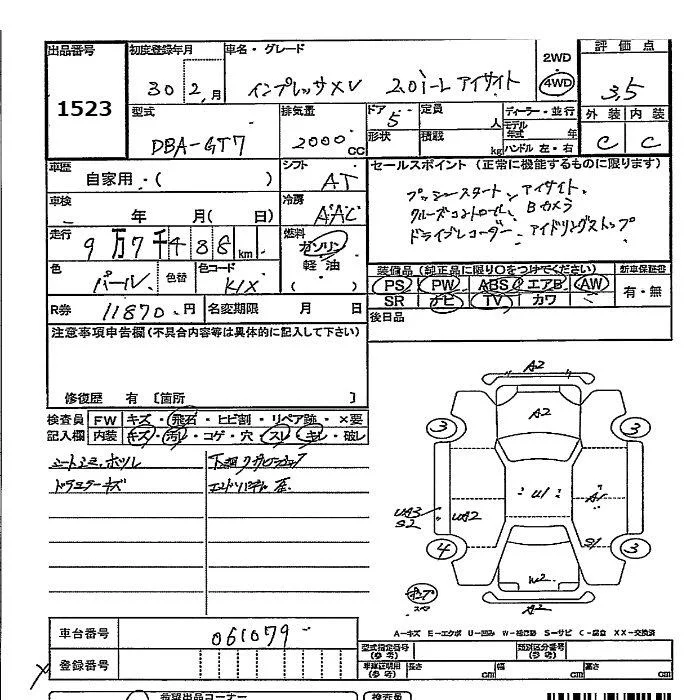 出品番号 初度登録年月 車名・グレード 評価点
1523 30 2月 インプレッサXV 2.0i-L アイサイト 2WD 4WD 3.5
型式 排気量 ドア 定員 ディーラー・並行 外装 内装
DBA-GT7 2000cc 5 人 モデル年式 年 C C
形状 積載 kg ハンドル 左・右
車歴 シフト セールスポイント (正常に機能するものに限ります)
自家用・( ) AT プッシュスタート、アイサイト、
車検 冷房 クルーズコントロール、Bカメラ
年 月( 日) AAC ドライブレコーダー、アイドリングストップ
走行 燃料
9万7千488km ガソリン 軽油 ( )
色 色替 色コード 装備品 (純正品に限り○をつけてください) 新車保証書
パール K1X PS PW ABS エアB AW 有・無
SR ナビ TV カワ
R券 11870円 名変期限 月 日 後日品
注意事項申告欄(不具合内容等は具体的に記入して下さい)
修復歴 有 [箇所 ]
検査員 FW キズ・飛石・ヒビ割・リペア跡・×要
記入欄 内装 キズ・汚レ・コゲ・穴・スレ・キレ・破レ
シートシミ・ホツレ
A2
A2
3 3
U1 A1
UA3 S2 UA2
4 S1 3
W2
A2
A-キズ E-エクボ U-凹み W-補修跡 S-サビ C-腐食 XX-交換済
車台番号 061079
登録番号
型式指定番号(参考) 類別区分番号(参考)
車庫証明用(参考) 長さ cm 幅 cm 高さ cm
希望出品コーナー 検査員